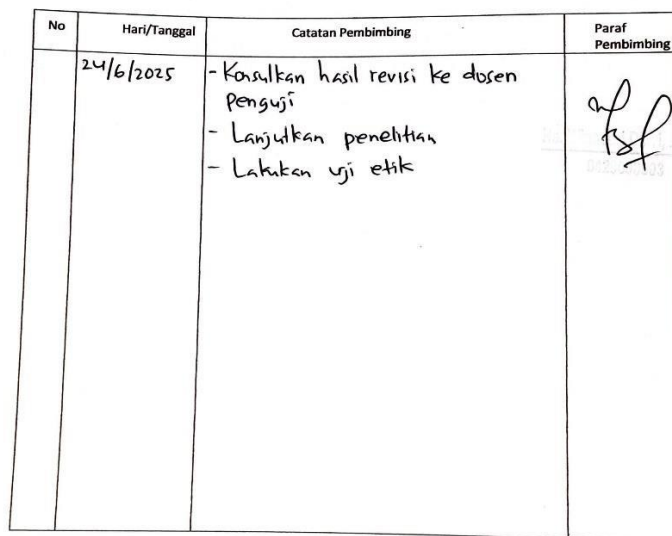 No Hari/Tanggal Catatan Pembimbing Paraf
Pembimbing
24/6/2025 - Konsulkan hasil revisi ke dosen
penguji
- Lanjutkan penelitian
- Lakukan uji etik